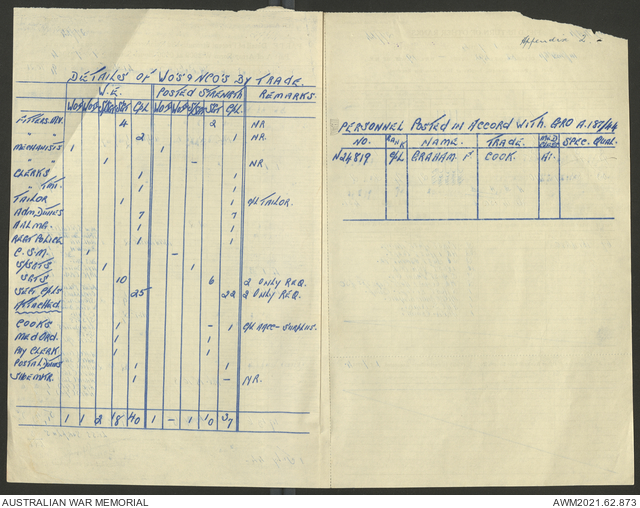 Appendix 2.
DETAILS OF WO'S & NCO'S BY TRADE.
W.E. POSTED STRENGTH REMARKS.
SGT CPL SGT CPL
FITTERS. 4 2 NR
" " 2 1 NR.
MECHANISTS 1 1
" " 1 - NR
CLERKS 1 1
" 1 1
TAILOR 1 CPL TAILOR.
ADM. DUTIES 7 7
1 1
REGT POLICE 1 1
C.S.M. 1 -
S/SGTS 1 1
SGTS 10 6 2 ONLY REQ.
CPLS 25 22 2 ONLY REQ.
ATTACHED
COOKS 1 - 1 CPL SURPLUS.
MED ORD. 1 1
PAY CLERK. 1 1
POSTAL DUTIES 1 1
SHOEMKR. 1 - NR.
1 1 2 18 40 1 - 1 10 37
PERSONNEL POSTED IN ACCORD WITH GRO A.187/44
NO. RANK NAME. TRADE. MED CLASS SPEC. QUAL.
N224819 CPL GRAHAM F COOK. A1.
AUSTRALIAN WAR MEMORIAL
AWM2021.62.873